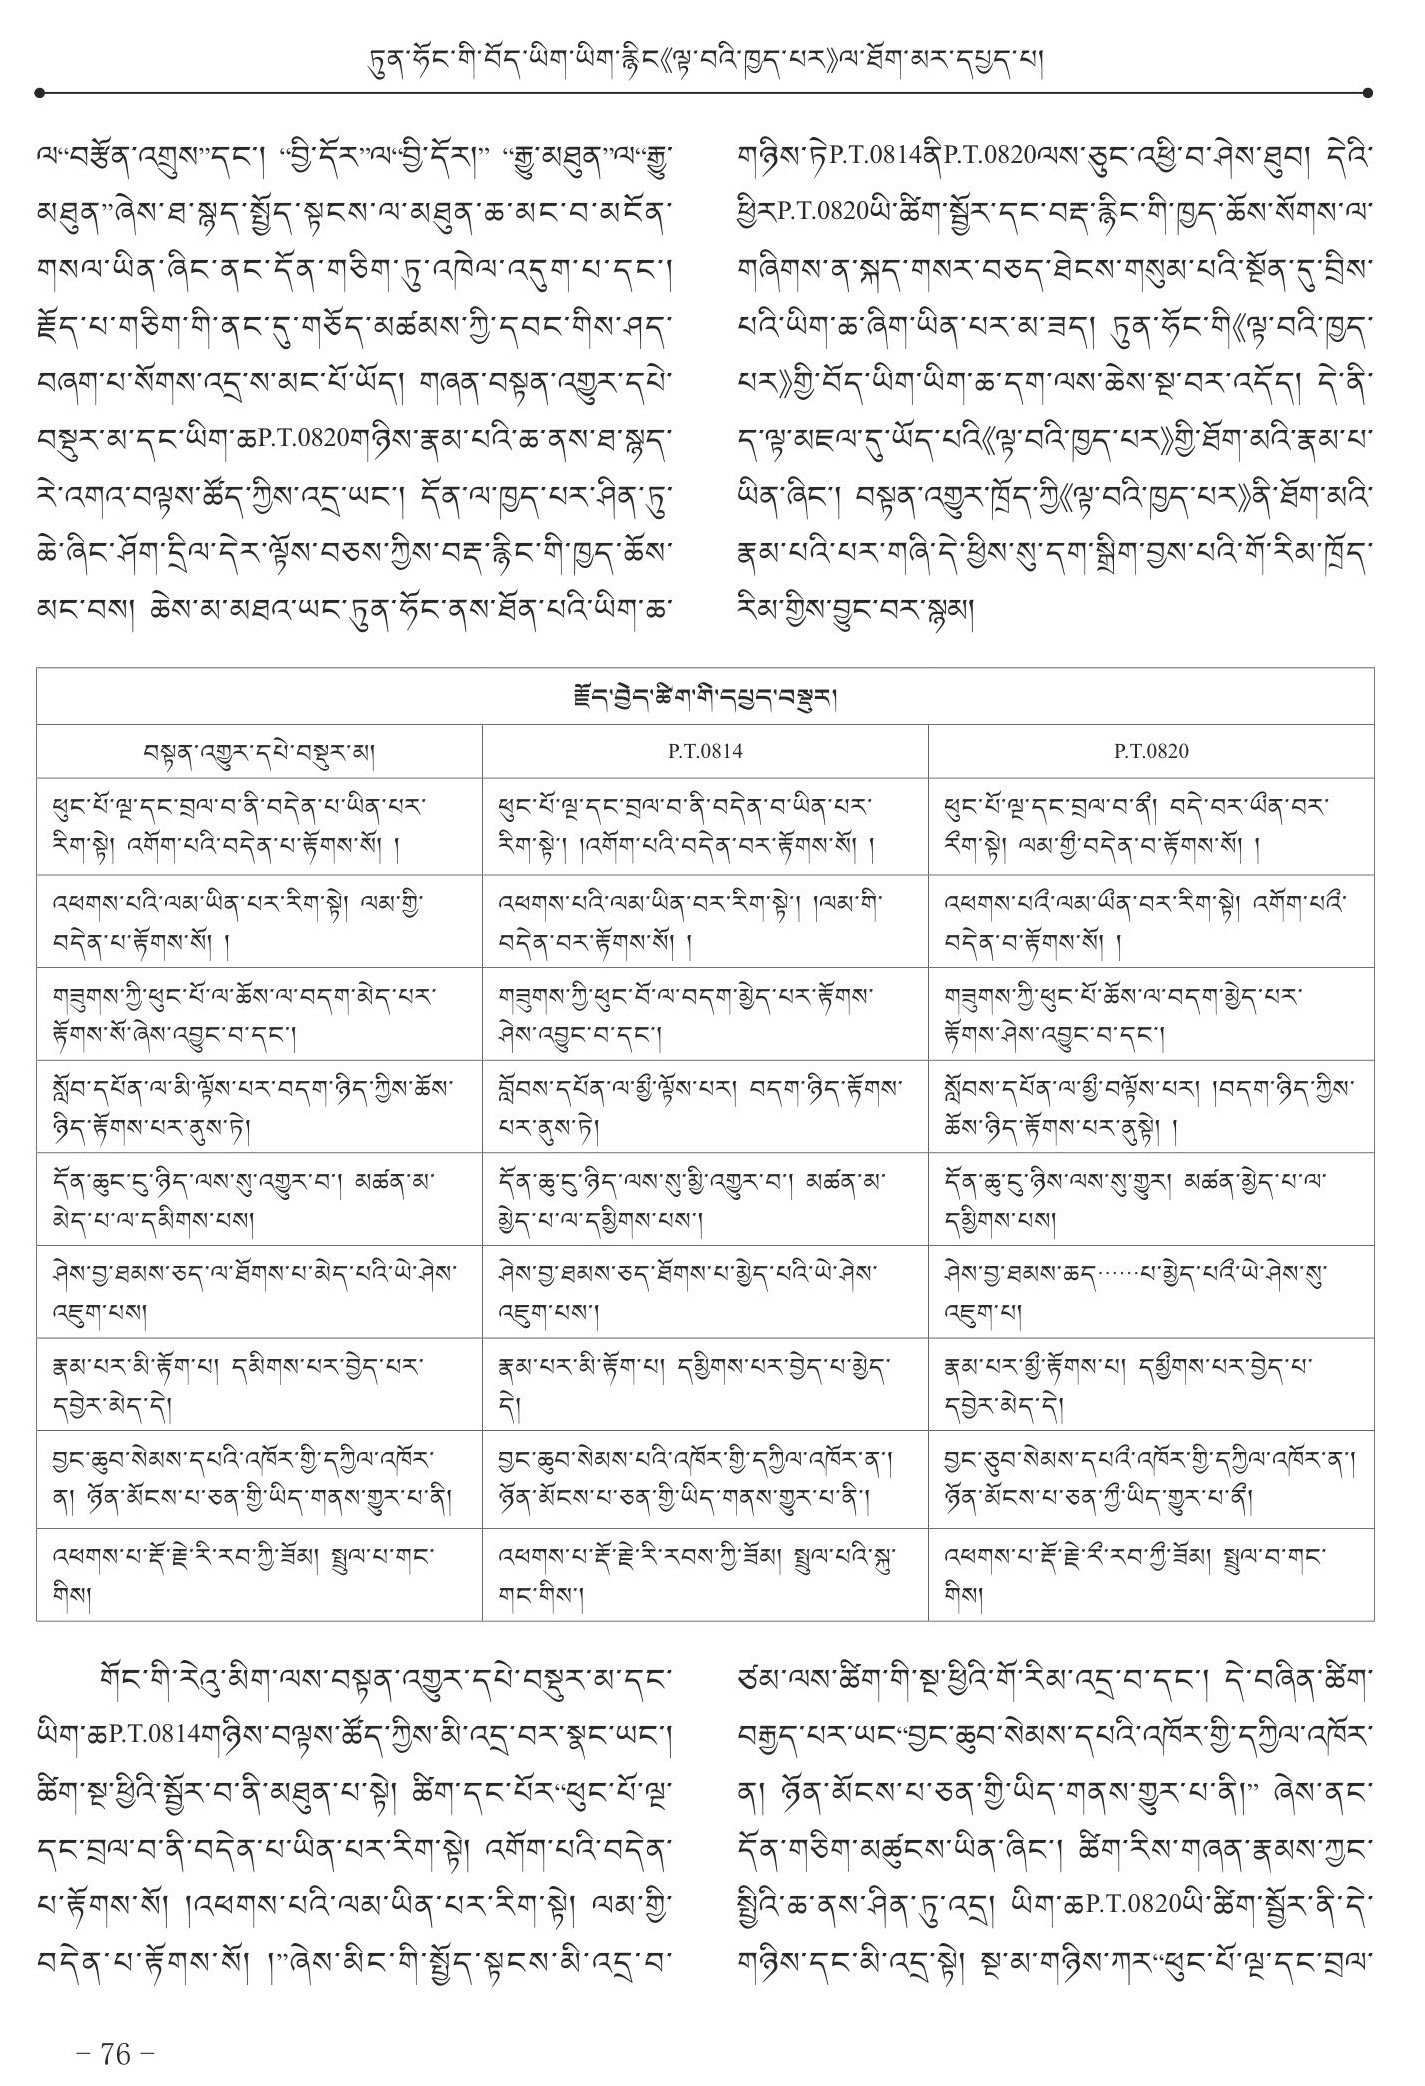 ཏུན་ཧོང་གི་བོད་ཡིག་ཡིག་རྙིང《ལྟ་བའི་ཁྱད་པར》ལ་ཐོག་མར་དཔྱད་པ།
ལ“བརྩོན་འགྲུས”དང་། “བྱི་དོར”ལ“བྱི་དོར།” “རྒྱུ་མཐུན”ལ“རྒྱུ་
མཐུན”ཞེས་ཐ་སྙད་སྤྱོད་སྟངས་ལ་མཐུན་ཆ་མང་བ་མངོན་
གསལ་ཡིན་ཞིང་ནང་དོན་གཅིག་ཏུ་འཁེལ་འདུག་པ་དང་།
རྗོད་པ་གཅིག་གི་ནང་དུ་གཅོད་མཚམས་ཀྱི་དབང་གིས་ཤད་
བཞག་པ་སོགས་འདྲ་ས་མང་པོ་ཡོད། གཞན་བསྟན་འགྱུར་དཔེ་
བསྡུར་མ་དང་ཡིག་ཆP.T.0820གཉིས་རྣམ་པའི་ཆ་ནས་ཐ་སྙད་
རེ་འགའ་བལྟས་ཚོད་ཀྱིས་འདྲ་ཡང་། དོན་ལ་ཁྱད་པར་ཤིན་ཏུ་
ཆེ་ཞིང་ཤོག་དྲིལ་དེར་ལྟོས་བཅས་ཀྱིས་བརྡ་རྙིང་གི་ཁྱད་ཆོས་
མང་བས། ཆེས་མ་མཐའ་ཡང་ཏུན་ཧོང་ནས་ཐོན་པའི་ཡིག་ཆ་
གཉིས་ཏེP.T.0814ནིP.T.0820ལས་ཅུང་འཕྱི་བ་ཤེས་ཐུབ། དེའི་
ཕྱིརP.T.0820ཡི་ཚིག་སྦྱོར་དང་བརྡ་རྙིང་གི་ཁྱད་ཆོས་སོགས་ལ་
གཞིགས་ན་སྐད་གསར་བཅད་ཐེངས་གསུམ་པའི་སྔོན་དུ་བྲིས་
པའི་ཡིག་ཆ་ཞིག་ཡིན་པར་མ་ཟད། ཏུན་ཧོང་གི《ལྟ་བའི་ཁྱད་
པར》གྱི་བོད་ཡིག་ཡིག་ཆ་དག་ལས་ཆེས་སྔ་བར་འདོད། དེ་ནི་
ད་ལྟ་མཇལ་དུ་ཡོད་པའི《ལྟ་བའི་ཁྱད་པར》གྱི་ཐོག་མའི་རྣམ་པ་
ཡིན་ཞིང་། བསྟན་འགྱུར་ཁྲོད་ཀྱི《ལྟ་བའི་ཁྱད་པར》ནི་ཐོག་མའི་
རྣམ་པའི་པར་གཞི་དེ་ཕྱིས་སུ་དག་སྒྲིག་བྱས་པའི་གོ་རིམ་ཁྲོད་
རིམ་གྱིས་བྱུང་བར་སྙམ།
རྗོད་བྱེད་ཚིག་གི་དཔྱད་བསྡུར།
བསྟན་འགྱུར་དཔེ་བསྡུར་མ།
P.T.0814
P.T.0820
ཕུང་པོ་ལྔ་དང་བྲལ་བ་ནི་བདེན་པ་ཡིན་པར་
རིག་སྟེ། འགོག་པའི་བདེན་པ་རྟོགས་སོ། །
ཕུང་པོ་ལྔ་དང་བྲལ་བ་ནི་བདེན་བ་ཡིན་པར་
རིག་སྟེ་། །འགོག་པའི་བདེན་བར་རྟོགས་སོ། །
ཕུང་པོ་ལྔ་དང་བྲལ་བ་ནྀ། བདེ་བར་ཡྀན་བར་
རྀག་སྟེ། ལམ་གྱྀ་བདེན་བ་རྟོགས་སོ། །
འཕགས་པའི་ལམ་ཡིན་པར་རིག་སྟེ། ལམ་གྱི་
བདེན་པ་རྟོགས་སོ། །
འཕགས་པའི་ལམ་ཡིན་བར་རིག་སྟེ་། །ལམ་གི་
བདེན་བར་རྟོགས་སོ། །
འཕགས་པའྀ་ལམ་ཡྀན་བར་རིག་སྟེ། འགོག་པའྀ་
བདེན་བ་རྟོགས་སོ། །
གཟུགས་ཀྱི་ཕུང་པོ་ལ་ཆོས་ལ་བདག་མེད་པར་
རྟོགས་སོ་ཞེས་འབྱུང་བ་དང་།
གཟུགས་ཀྱི་ཕུང་བོ་ལ་བདག་མྱེད་པར་རྟོགས་
ཤེས་འབྱུང་བ་དང་།
གཟུགས་ཀྱི་ཕུང་པོ་ཆོས་ལ་བདག་མྱེད་པར་
རྟོགས་ཤེས་འབྱུང་བ་དང་།
སློབ་དཔོན་ལ་མི་ལྟོས་པར་བདག་ཉིད་ཀྱིས་ཆོས་
ཉིད་རྟོགས་པར་ནུས་ཏེ།
བློབས་དཔོན་ལ་མྱི་ལྟོས་པར། བདག་ཉིད་རྟོགས་
པར་ནུས་ཏེ།
སློབས་དཔོན་ལ་མྱྀ་བལྟོས་པར། །བདག་ཉིད་ཀྱིས་
ཆོས་ཉིད་རྟོགས་པར་ནུསྟེ། །
དོན་ཆུང་ངུ་ཉིད་ལས་སུ་འགྱུར་བ་། མཚན་མ་
མེད་པ་ལ་དམིགས་པས།
དོན་ཆུ་ངུ་ཉིད་ལས་སུ་མྱི་འགྱུར་བ་། མཚན་མ་
མྱེད་པ་ལ་དམྱིགས་པས་།
དོན་ཆུ་ངུ་ཉིས་ལས་སུ་གྱུར། མཚན་མྱེད་པ་ལ་
དམྱིགས་པས།
ཤེས་བྱ་ཐམས་ཅད་ལ་ཐོགས་པ་མེད་པའི་ཡེ་ཤེས་
འཇུག་པས།
ཤེས་བྱ་ཐམས་ཅད་ཐོགས་པ་མྱེད་པའི་ཡེ་ཤེས་
འཇུག་པས་།
ཤེས་བྱ་ཐམས་ཆད……པ་མྱེད་པའྀ་ཡེ་ཤེས་སུ་
འཇུག་པ།
རྣམ་པར་མི་རྟོག་པ། དམིགས་པར་བྱེད་པར་
དབྱེར་མེད་དེ།
རྣམ་པར་མི་རྟོག་པ། དམྱིགས་པར་བྱེད་པ་མྱེད་
དེ།
རྣམ་པར་མྱྀ་རྟོགས་པ། དམྱྀགས་པར་བྱེད་པ་
དབྱེར་མེད་དེ།
བྱང་ཆུབ་སེམས་དཔའི་འཁོར་གྱི་དཀྱིལ་འཁོར་
ན། ཉོན་མོངས་པ་ཅན་གྱི་ཡིད་གནས་གྱུར་པ་ནི།
བྱང་ཆུབ་སེམས་པའི་འཁོར་གྱི་དཀྱིལ་འཁོར་ན་།
ཉོན་མོངས་པ་ཅན་གྱི་ཡིད་གནས་གྱུར་པ་ནི་།
བྱང་ཅུབ་སེམས་དཔའྀ་འཁོར་གྱི་དཀྱིལ་འཁོར་ན་།
ཉོན་མོངས་པ་ཅན་ཀྱྀ་ཡིད་གྱུར་པ་ནྀ།
འཕགས་པ་རྡོ་རྗེ་རི་རབ་ཀྱི་ཟོམ། སྤྲུལ་པ་གང་
གིས།
འཕགས་པ་རྡོ་རྗེ་རི་རབས་ཀྱི་ཟོམ། སྤྲུལ་པའི་སྐུ་
གང་གིས་།
འཕགས་པ་རྡོ་རྗེ་རྀ་རབ་ཀྱྀ་ཟོམ། སྤྲུལ་བ་གང་
གིས།
གོང་གི་རེའུ་མིག་ལས་བསྟན་འགྱུར་དཔེ་བསྡུར་མ་དང་
ཡིག་ཆP.T.0814གཉིས་བལྟས་ཚོད་ཀྱིས་མི་འདྲ་བར་སྣང་ཡང་།
ཚིག་སྔ་ཕྱིའི་སྦྱོར་བ་ནི་མཐུན་པ་སྟེ། ཚིག་དང་པོར“ཕུང་པོ་ལྔ་
དང་བྲལ་བ་ནི་བདེན་པ་ཡིན་པར་རིག་སྟེ། འགོག་པའི་བདེན་
པ་རྟོགས་སོ། །འཕགས་པའི་ལམ་ཡིན་པར་རིག་སྟེ། ལམ་གྱི་
བདེན་པ་རྟོགས་སོ། །”ཞེས་མིང་གི་སྤྱོད་སྟངས་མི་འདྲ་བ་
ཙམ་ལས་ཚིག་གི་སྔ་ཕྱིའི་གོ་རིམ་འདྲ་བ་དང་། དེ་བཞིན་ཚིག་
བརྒྱད་པར་ཡང“བྱང་ཆུབ་སེམས་དཔའི་འཁོར་གྱི་དཀྱིལ་འཁོར་
ན། ཉོན་མོངས་པ་ཅན་གྱི་ཡིད་གནས་གྱུར་པ་ནི།” ཞེས་ནང་
དོན་གཅིག་མཚུངས་ཡིན་ཞིང་། ཚིག་རིས་གཞན་རྣམས་ཀྱང་
སྤྱིའི་ཆ་ནས་ཤིན་ཏུ་འདྲ། ཡིག་ཆP.T.0820ཡི་ཚིག་སྦྱོར་ནི་དེ་
གཉིས་དང་མི་འདྲ་སྟེ། སྔ་མ་གཉིས་ཀར“ཕུང་པོ་ལྔ་དང་བྲལ་
– 76 –